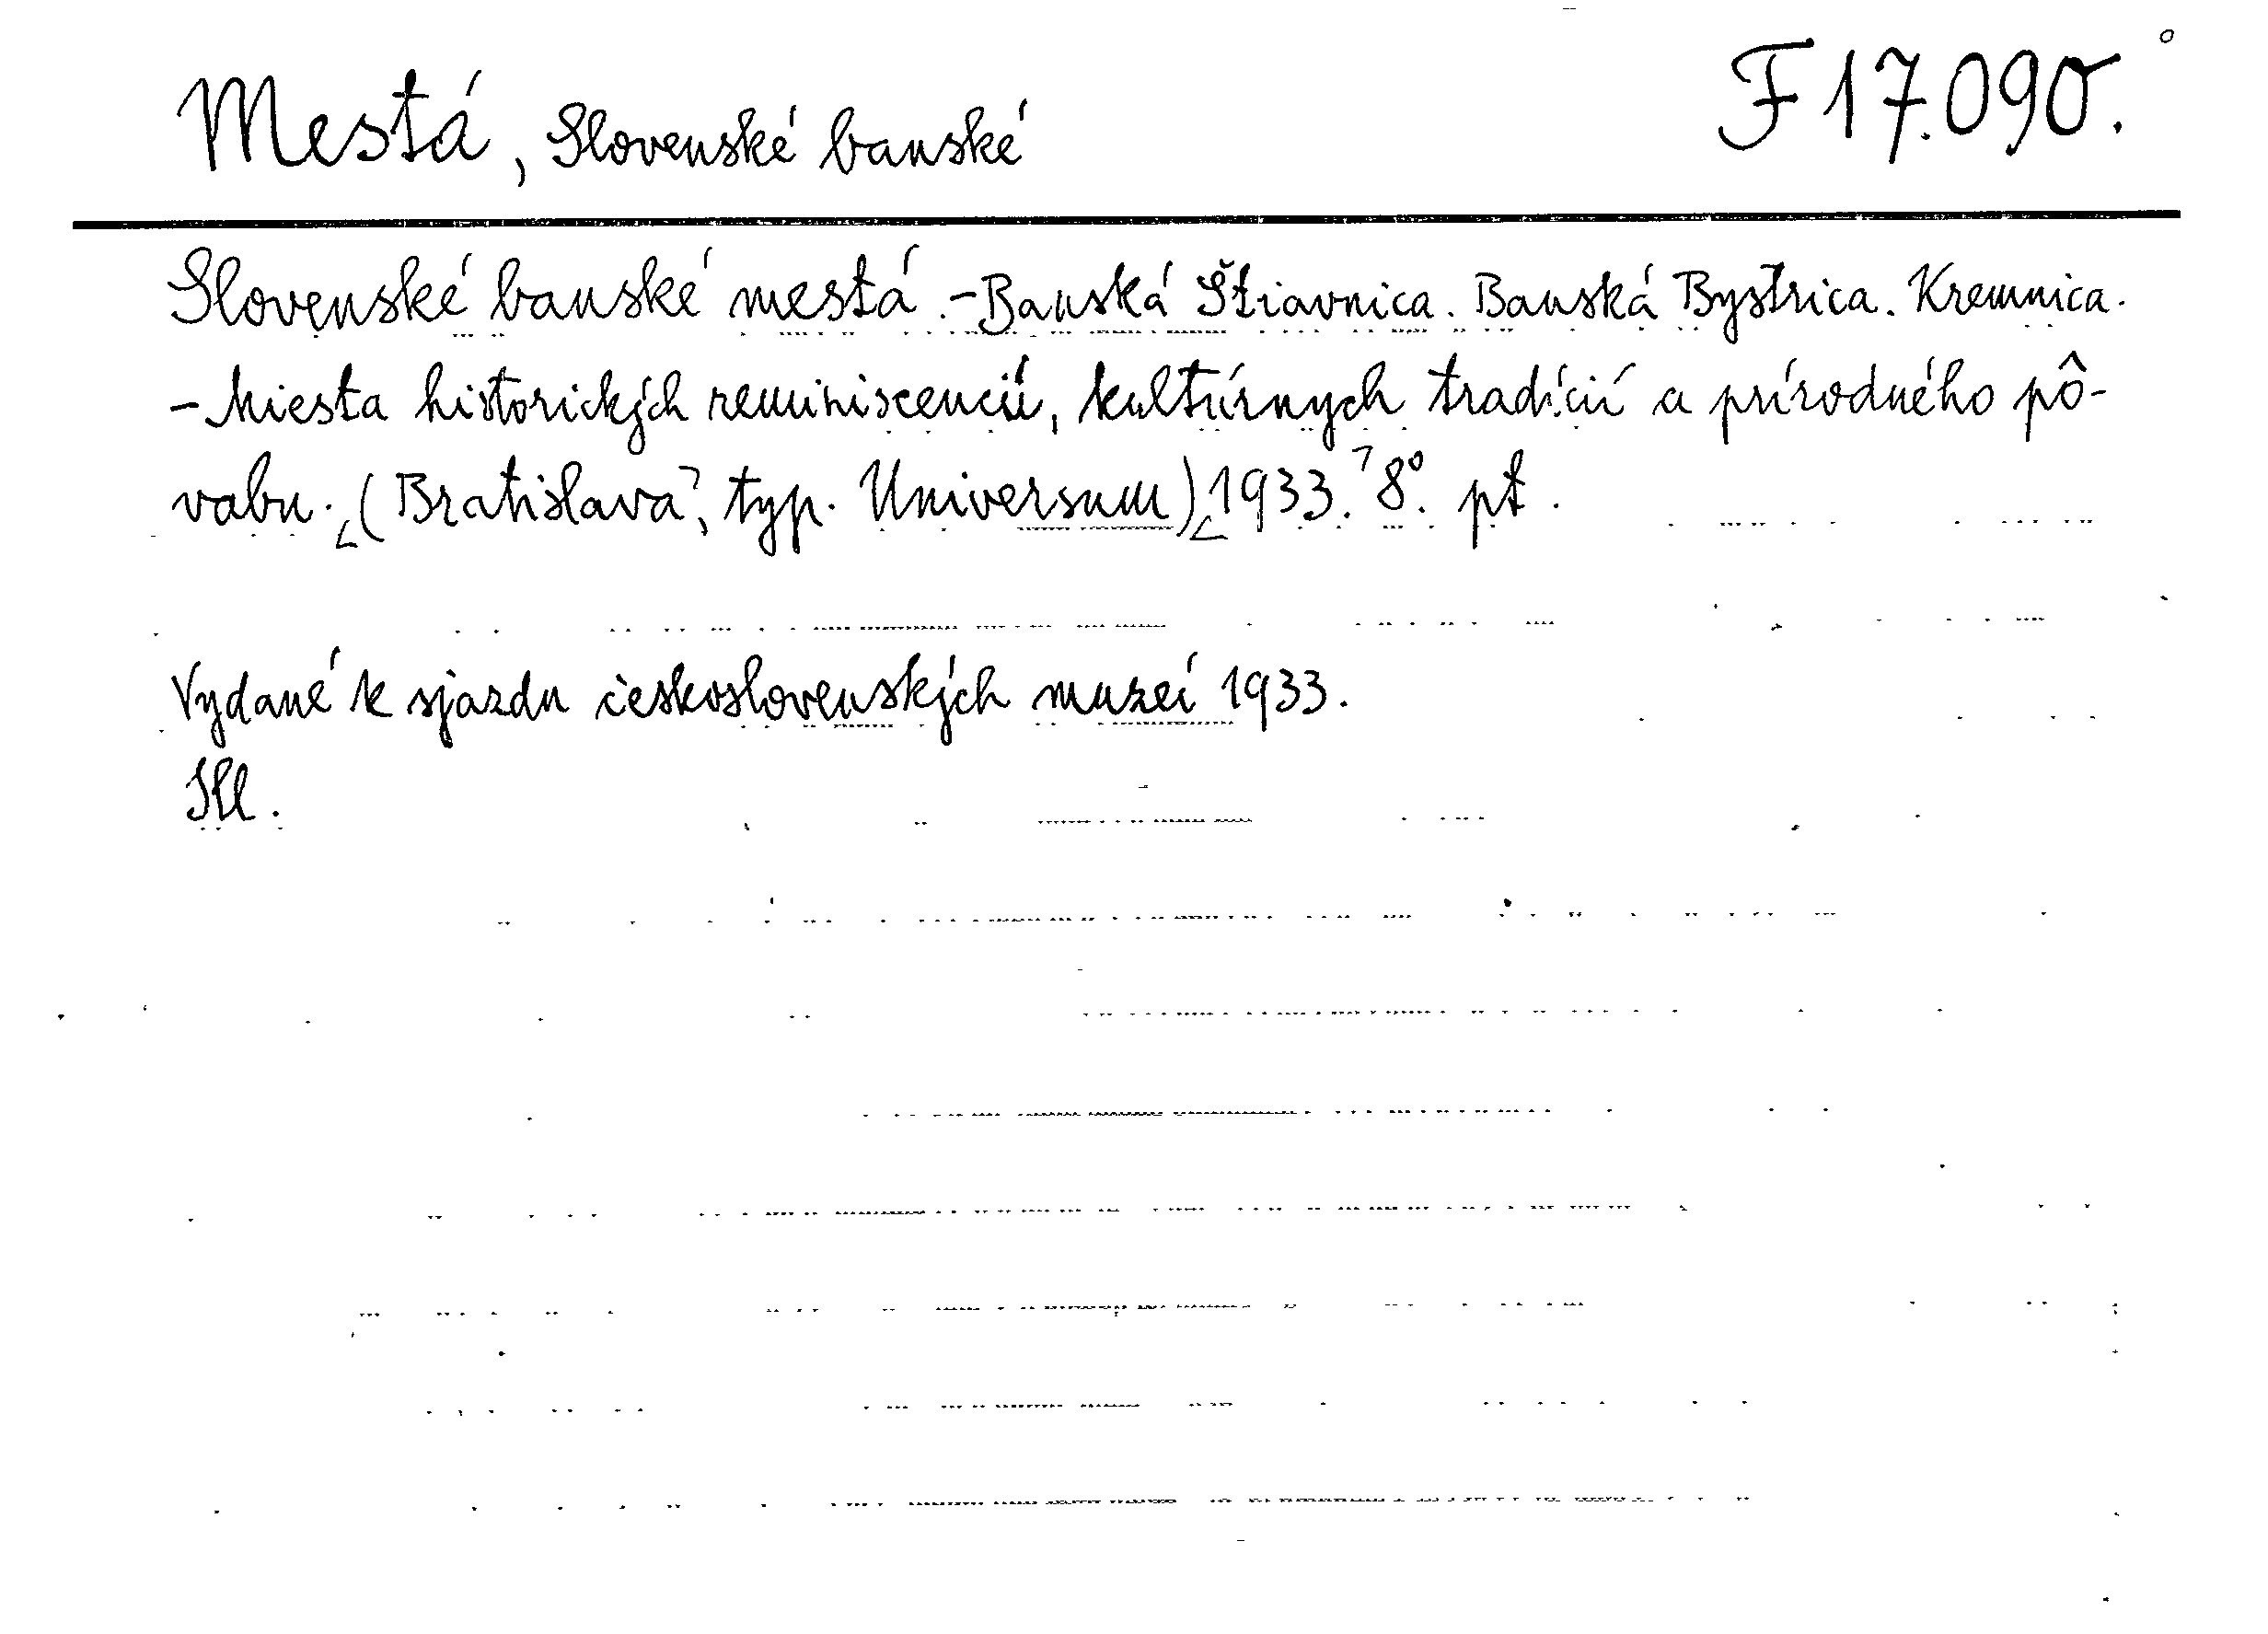 Mestá, Slovenské banské
F 17.090.
Slovenské banské mestá. - Banská Štiavnica. Banská Bystrica. Kremnica.
- Miesta historických reminiscencií, kultúrnych tradícií a prírodného pô-
vabu. (Bratislava, typ. Universum) 1933. 8°. pt.
Vydané k sjazdu československých muzeí 1933.
Ill.